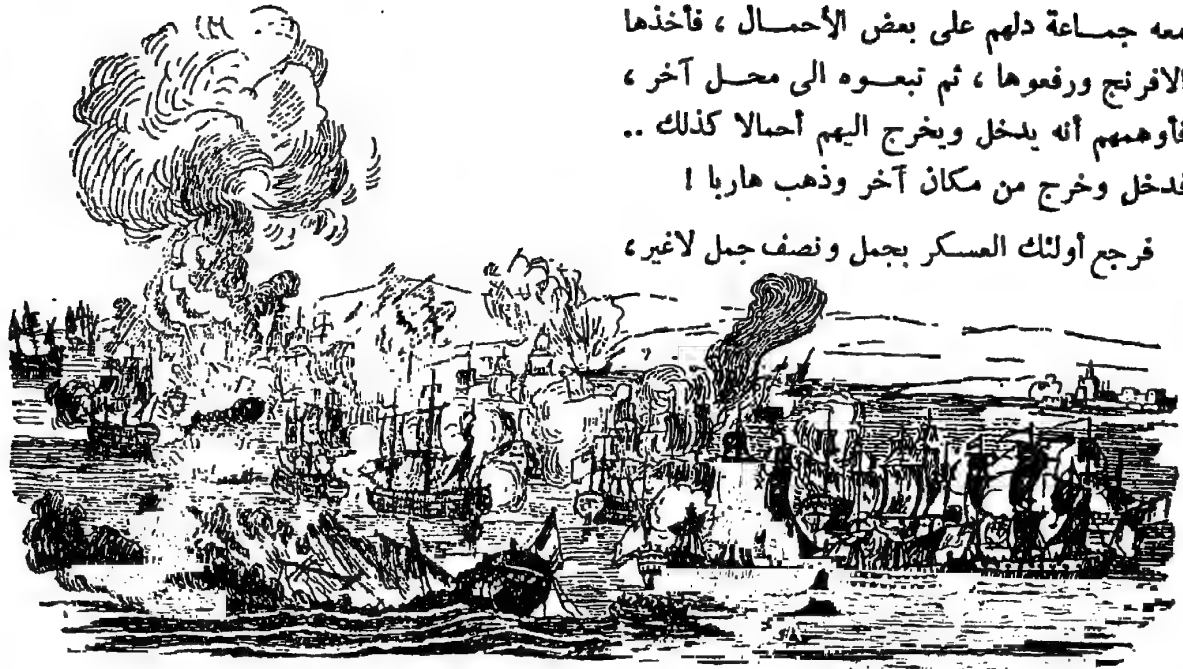 معه جماعة دلهم على بعض الأحمال ، فأخذها
الافرنج ورفعوها ، ثم تبعوه الى محل آخر ،
فأوهمهم أنه يدخل ويخرج اليهم أحمالا كذلك ..
فدخل وخرج من مكان آخر وذهب هاربا !
فرجع أولئك العسكر بجمل ونصف جمل لاغير ،